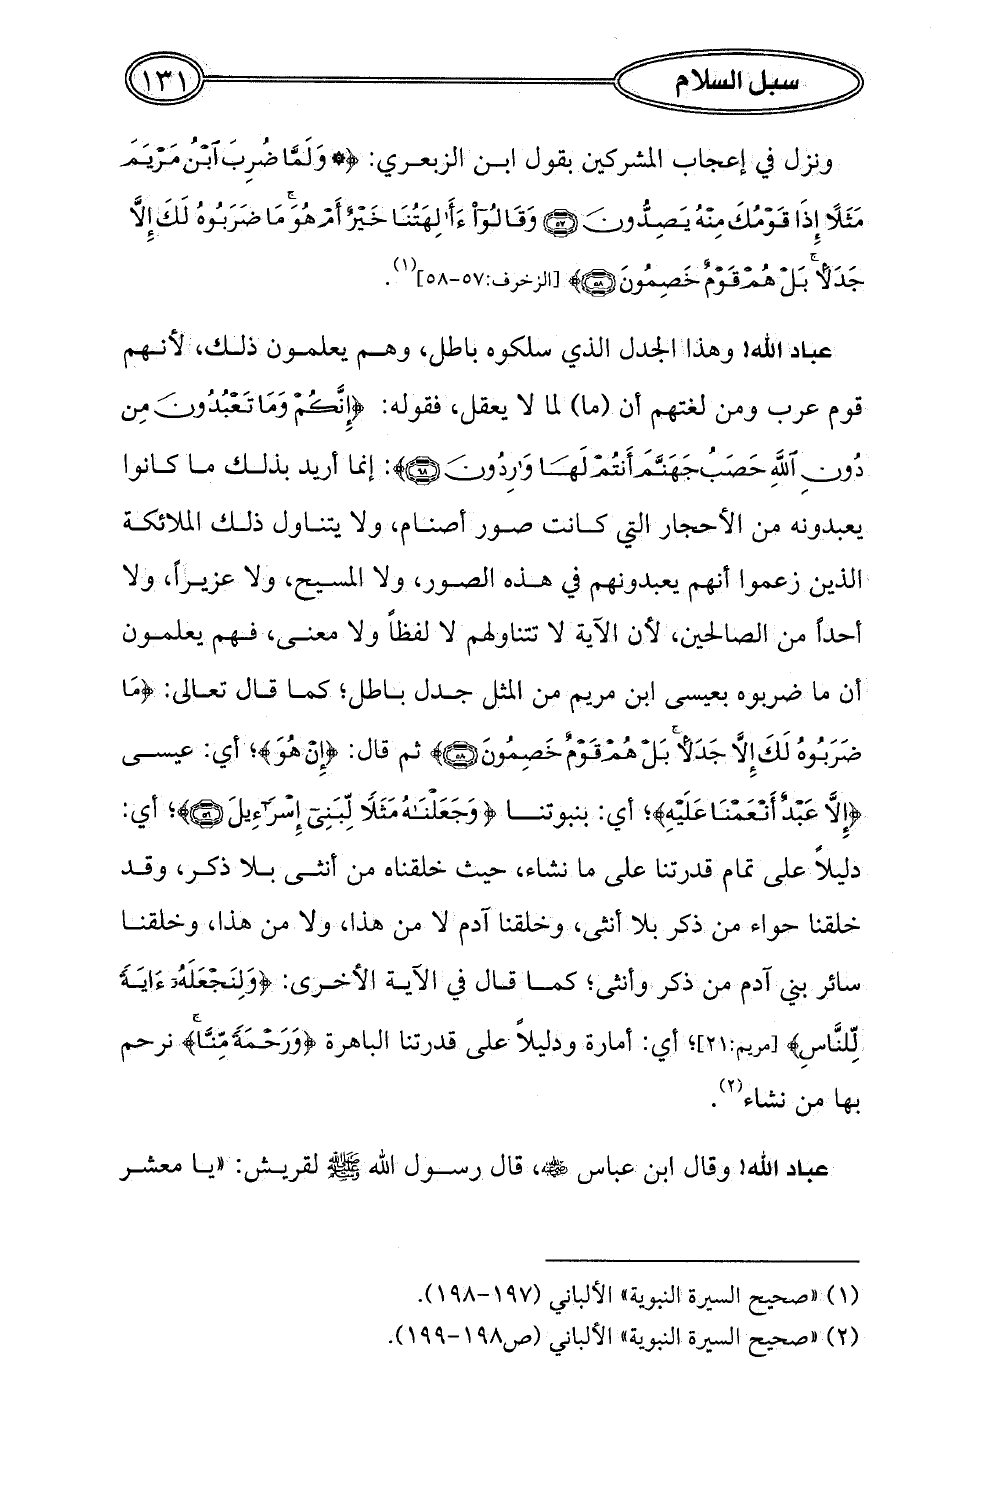 سبل السلام
١٣١
ونزل في إعجاب المشركين بقول ابن الزبعري: ﴿۞ وَلَمَّا ضُرِبَ ٱبْنُ مَرْيَمَ
مَثَلًا إِذَا قَوْمُكَ مِنْهُ يَصِدُّونَ ۝٥٧ وَقَالُوٓا۟ ءَأَٰلِهَتُنَا خَيْرٌ أَمْ هُوَ ۚ مَا ضَرَبُوهُ لَكَ إِلَّا
جَدَلًۢا ۚ بَلْ هُمْ قَوْمٌ خَصِمُونَ ۝٥٨﴾ [الزخرف:٥٧-٥٨](١).
عباد الله! وهذا الجدل الذي سلكوه باطل، وهم يعلمون ذلك، لأنهم
قوم عرب ومن لغتهم أن (ما) لما لا يعقل، فقوله: ﴿إِنَّكُمْ وَمَا تَعْبُدُونَ مِن
دُونِ ٱللَّهِ حَصَبُ جَهَنَّمَ أَنتُمْ لَهَا وَٰرِدُونَ ۝٩٨﴾: إنما أريد بذلك ما كانوا
يعبدونه من الأحجار التي كانت صور أصنام، ولا يتناول ذلك الملائكة
الذين زعموا أنهم يعبدونهم في هذه الصور، ولا المسيح، ولا عزيراً، ولا
أحداً من الصالحين، لأن الآية لا تتناولهم لا لفظاً ولا معنى، فهم يعلمون
أن ما ضربوه بعيسى ابن مريم من المثل جدل باطل؛ كما قال تعالى: ﴿مَا
ضَرَبُوهُ لَكَ إِلَّا جَدَلًۢا ۚ بَلْ هُمْ قَوْمٌ خَصِمُونَ ۝٥٨﴾ ثم قال: ﴿إِنْ هُوَ﴾؛ أي: عيسى
﴿إِلَّا عَبْدٌ أَنْعَمْنَا عَلَيْهِ﴾؛ أي: بنبوتنا ﴿وَجَعَلْنَٰهُ مَثَلًا لِّبَنِىٓ إِسْرَٰٓءِيلَ ۝٥٩﴾؛ أي:
دليلاً على تمام قدرتنا على ما نشاء، حيث خلقناه من أنثى بلا ذكر، وقد
خلقنا حواء من ذكر بلا أنثى، وخلقنا آدم لا من هذا، ولا من هذا، وخلقنا
سائر بني آدم من ذكر وأنثى؛ كما قال في الآية الأخرى: ﴿وَلِنَجْعَلَهُۥٓ ءَايَةً
لِّلنَّاسِ﴾ [مريم:٢١]؛ أي: أمارة ودليلاً على قدرتنا الباهرة ﴿وَرَحْمَةً مِّنَّا ۚ﴾ نرحم
بها من نشاء(٢).
عباد الله! وقال ابن عباس ﵁، قال رسول الله ﷺ لقريش: «يا معشر
(١) «صحيح السيرة النبوية» الألباني (١٩٧-١٩٨).
(٢) «صحيح السيرة النبوية» الألباني (ص١٩٨-١٩٩).